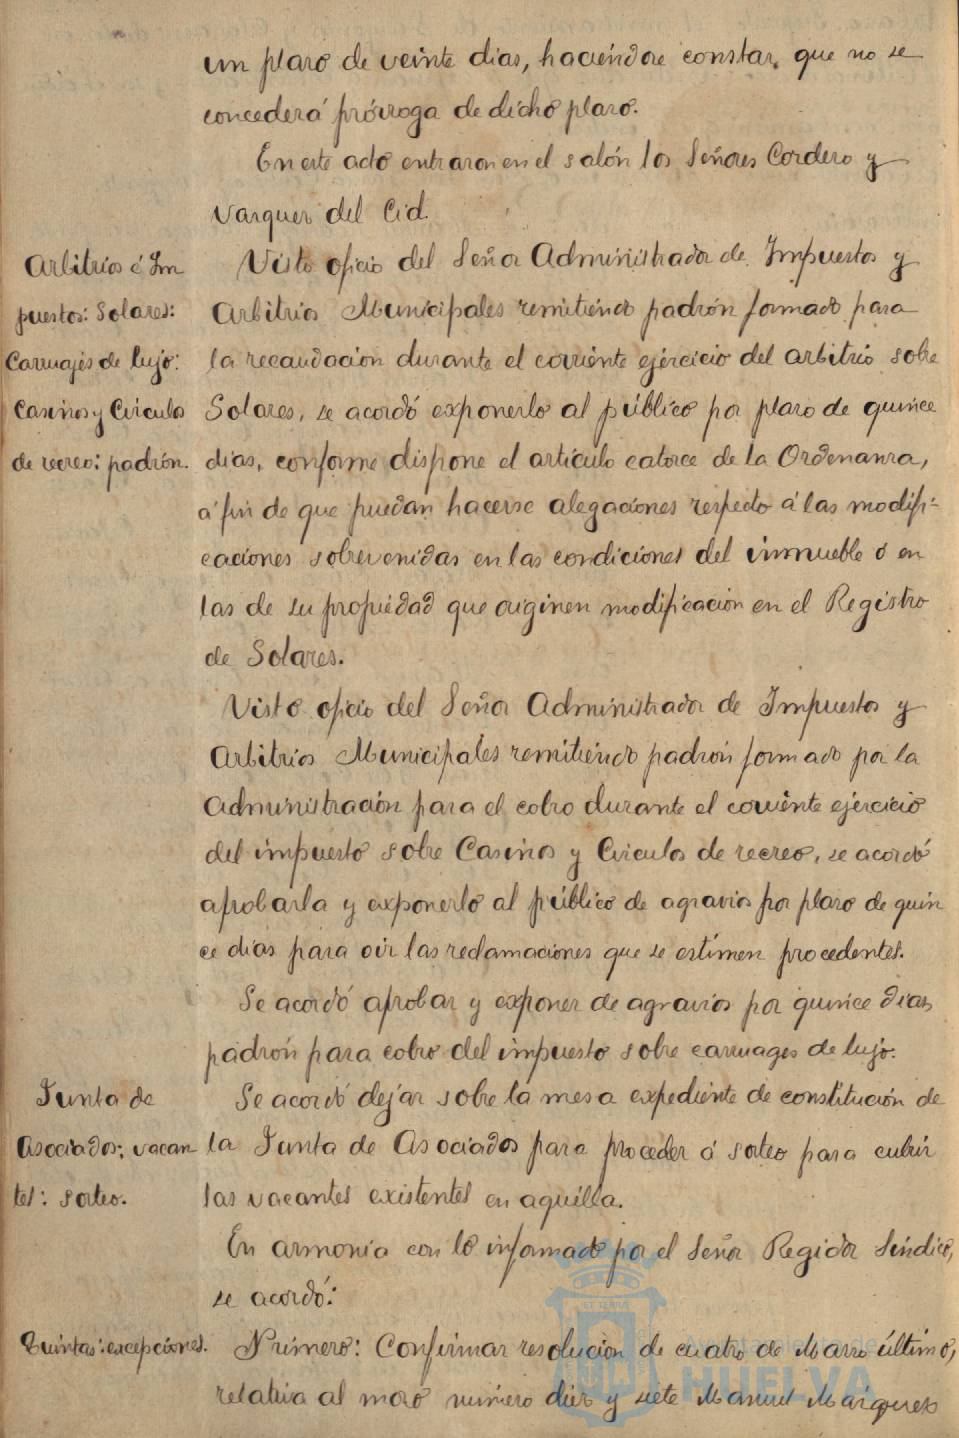 un plazo de veinte dias, haciéndose constar, que no se
concederá prórroga de dicho plazo.
En este acto entraron en el salón los Señores Cordero y
Vazquez del Cid.
Arbitrios é Im
puestos: Solares:
Carruajes de lujo:
Casinos y Circulos
de recreo: padrón.
Visto oficio del Señor Administrador de Impuestos y
Arbitrios Municipales remitiendo padrón formado para
la recaudación durante el corriente ejercicio del arbitrio sobre
Solares, se acordó exponerlo al público por plazo de quince
dias, conforme dispone el articulo catorce de la Ordenanza,
á fin de que puedan hacerse alegaciones respecto á las modifi-
caciones sobrevenidas en las condiciones del inmueble ó en
las de su propiedad que originen modificación en el Registro
de Solares.
Visto oficio del Señor Administrador de Impuestos y
Arbitrios Municipales remitiendo padrón formado por la
Administración para el cobro durante el corriente ejercicio
del impuesto sobre Casinos y Circulos de recreo, se acordó
aprobarla y exponerlo al público de agravios por plazo de quin
ce dias para oir las reclamaciones que se estimen procedentes.
Se acordó aprobar y exponer de agravios por quince dias
padrón para cobro del impuesto sobre carruages de lujo.
Junta de
Asociados; vacan
tes: sorteo.
Se acordó dejar sobre la mesa expediente de constitución de
la Junta de Asociados para proceder á sorteo para cubrir
las vacantes existentes en aquélla.
En armonia con lo informado por el Señor Regidor Sindico,
se acordó:
Quintas: excepciones.
Primero: Confirmar resolución de cuatro de Marzo último,
relativa al mozo número diez y siete Manuel Márquez
ET TERRA
Ayuntamiento de
HUELVA